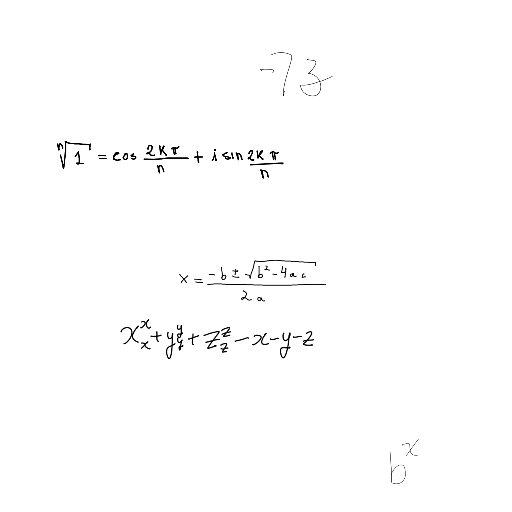 -73
\sqrt[n]{1} = \cos \frac{2k\pi}{n} + i \sin \frac{2k\pi}{n}
x = \frac{-b \pm \sqrt{b^2 - 4ac}}{2a}
x_x^x + y_y^y + z_z^z - x - y - z
b^x